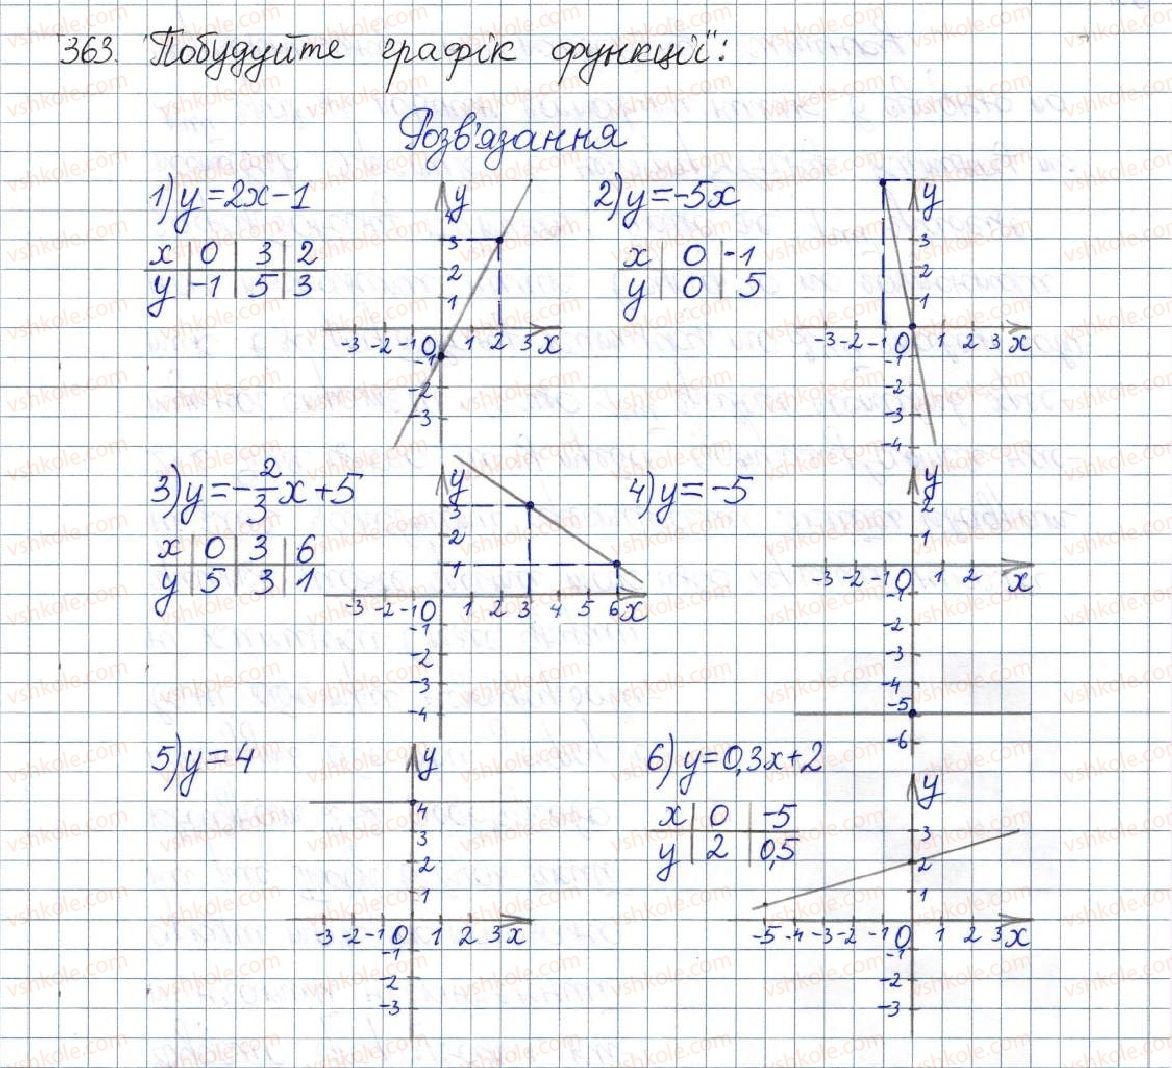 363. Побудуйте графік функції:
Розв'язання
1) y = 2x - 1
x | 0 | 3 | 2
y | -1 | 5 | 3
y
3
2
1
-3 -2 -1 0 1 2 3 x
-1
-2
-3
2) y = -5x
x | 0 | -1
y | 0 | 5
y
3
2
1
-3 -2 -1 0 1 2 3 x
-1
-2
-3
-4
3) y = -2/3 x + 5
x | 0 | 3 | 6
y | 5 | 3 | 1
y
3
2
1
-3 -2 -1 0 1 2 3 4 5 6 x
-1
-2
-3
-4
4) y = -5
y
2
1
-3 -2 -1 0 1 2 x
-1
-2
-3
-4
-5
-6
5) y = 4
y
4
3
2
1
-3 -2 -1 0 1 2 3 x
-1
-2
-3
6) y = 0,3x + 2
x | 0 | -5
y | 2 | 0,5
y
3
2
1
-5 -4 -3 -2 -1 0 1 2 3 x
-1
-2
-3
vshkole.com